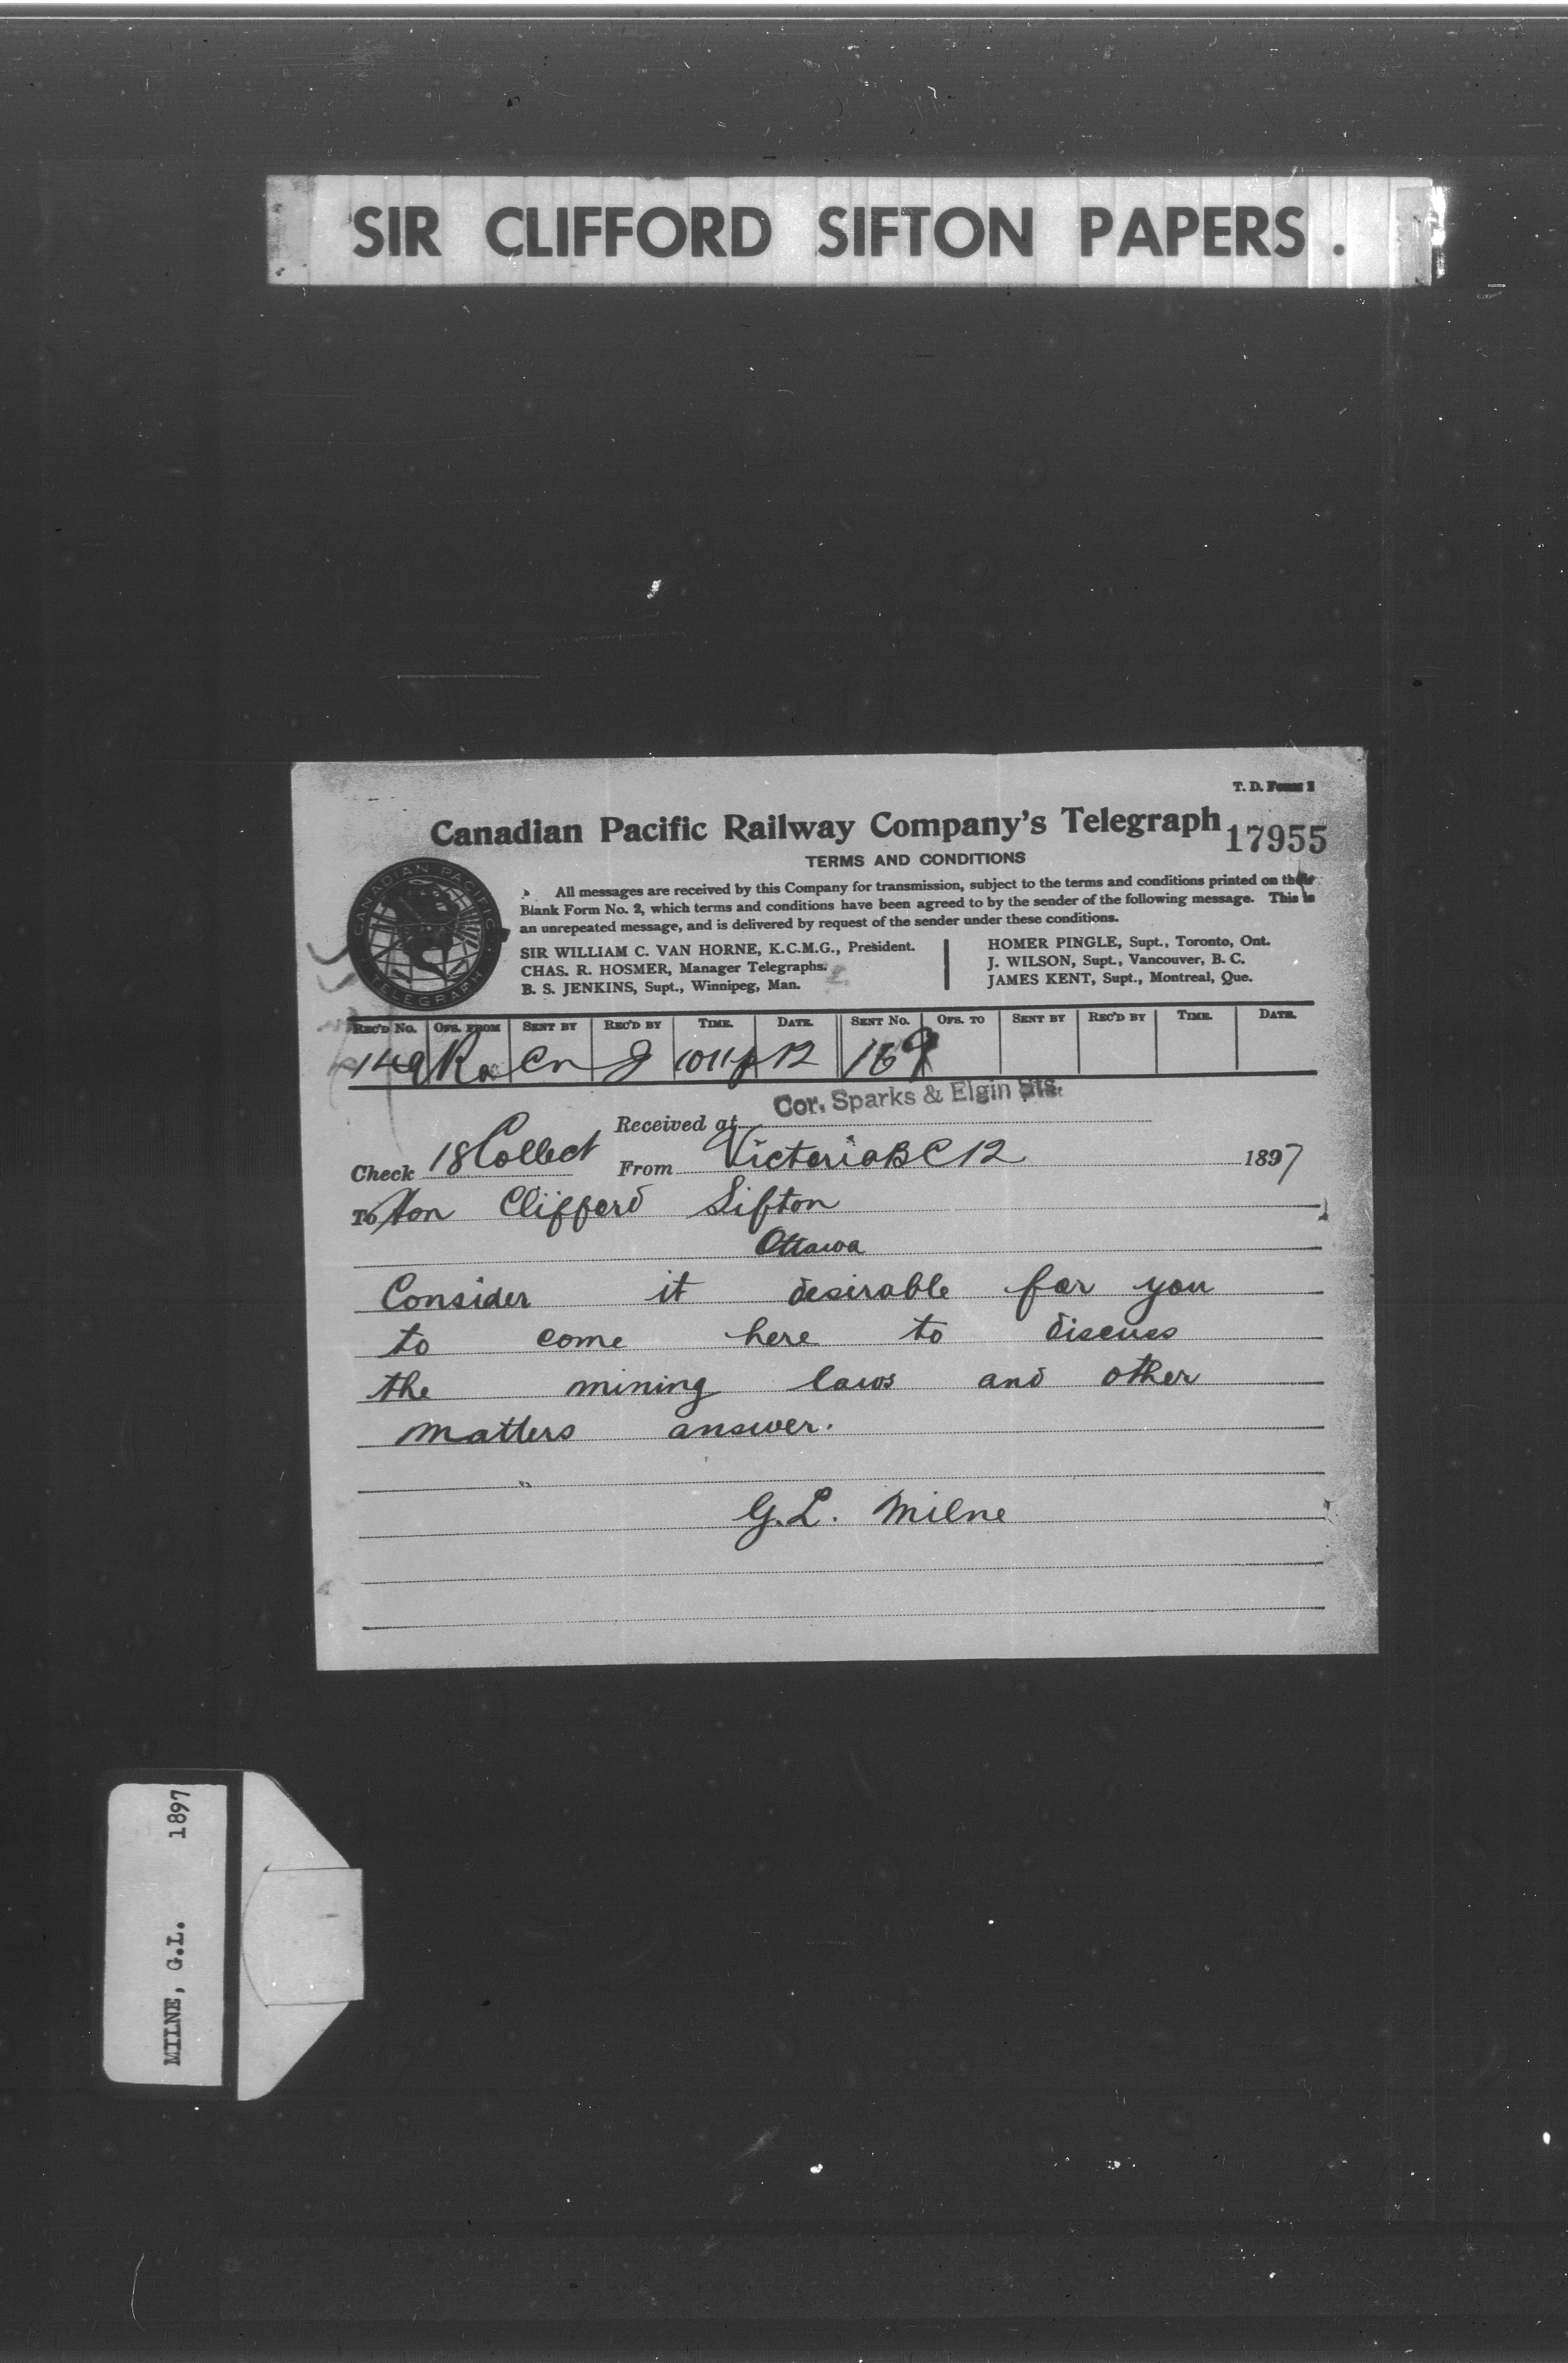 SIR CLIFFORD SIFTON PAPERS.
T. D. Form 1
Canadian Pacific Railway Company's Telegraph
17955
TERMS AND CONDITIONS
CANADIAN PACIFIC
TELEGRAPH
All messages are received by this Company for transmission, subject to the terms and conditions printed on their
Blank Form No. 2, which terms and conditions have been agreed to by the sender of the following message. This is
an unrepeated message, and is delivered by request of the sender under these conditions.
SIR WILLIAM C. VAN HORNE, K.C.M.G., President.
CHAS. R. HOSMER, Manager Telegraphs.
B. S. JENKINS, Supt., Winnipeg, Man.
HOMER PINGLE, Supt., Toronto, Ont.
J. WILSON, Supt., Vancouver, B. C.
JAMES KENT, Supt., Montreal, Que.
REC'D NO. OFS. FROM SENT BY REC'D BY TIME. DATE. SENT NO. OFS. TO SENT BY REC'D BY TIME. DATE.
149 Ra Cn 1011p 12 169
Received at Cor. Sparks & Elgin Sts.
Check 18 Collect From Victoria B C 12 1897
To Hon Clifford Sifton
Ottawa
Consider it desirable for you
to come here to discuss
the mining laws and other
matters answer.
G.L. Milne
MILNE, G.L. 1897